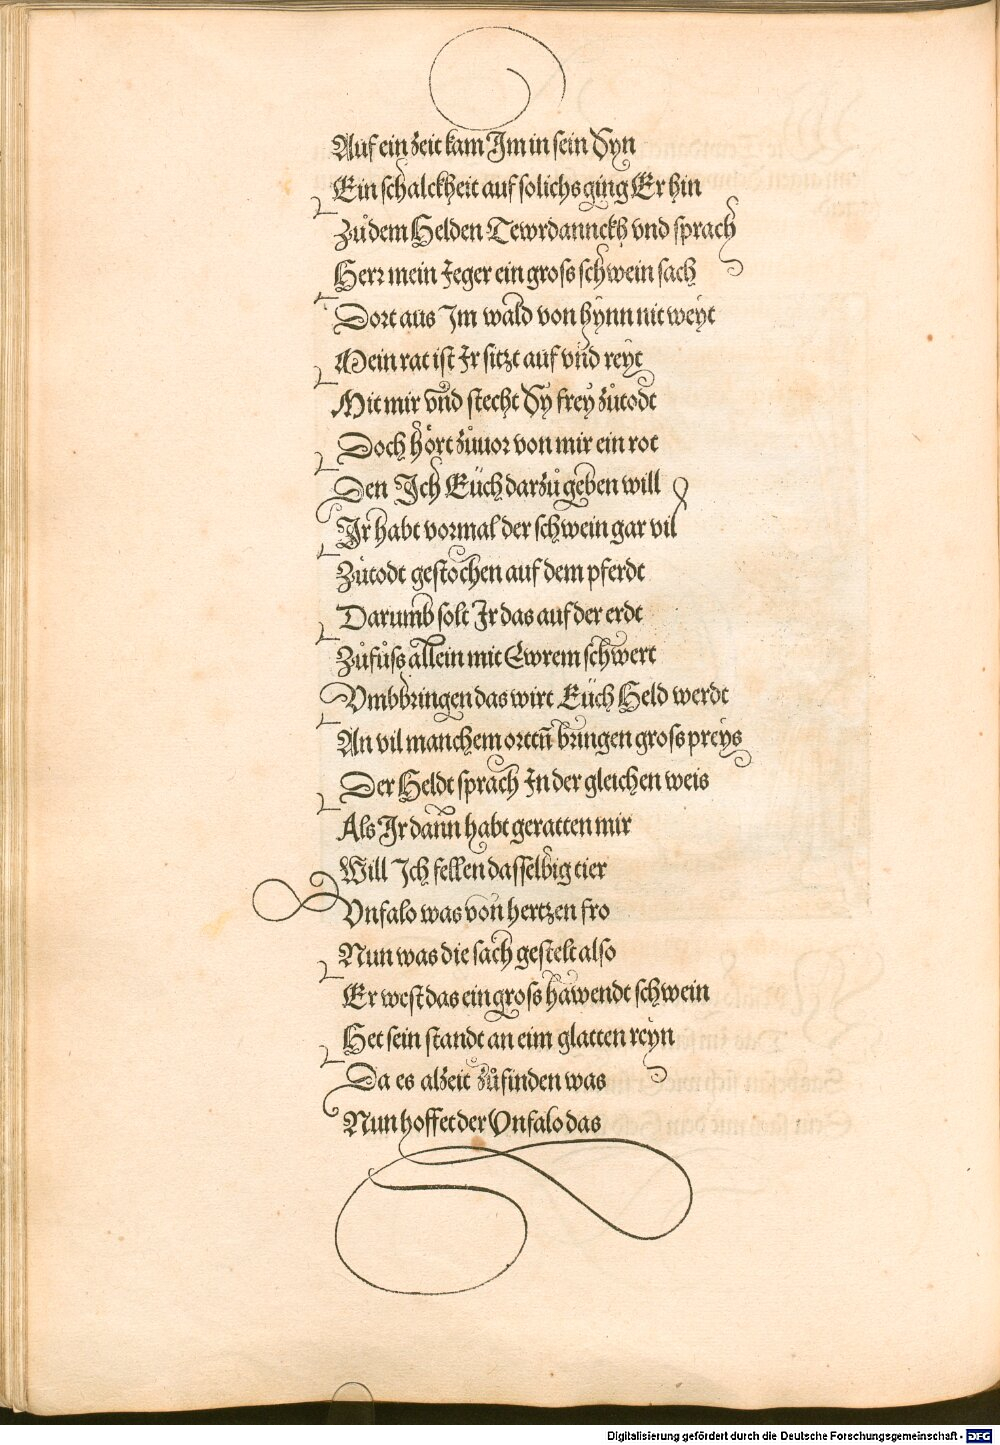 Auf ein zeit kam Im in sein Syn
Ein schalckheit auf solichs ging Er hin
Zůdem Helden Tewrdannckh vnd sprach
Herr mein Jeger ein gross schwein sach
Dort aus Im wald von hÿnn nit weÿt
Mein rat ist Ir sitzt auf vnd reÿt
Mit mir vnd stecht Sy freÿ zůtodt
Doch hört zůuor von mir ein rot
Den Ich Eüch darzů geben will
Ir habt vormal der schwein gar vil
Zůtodt gestochen auf dem pferdt
Darumb solt Ir das auf der erdt
Zůfůss allein mit Ewrem schwert
Vmbbringen das wirt Eüch Held werdt
An vil manchem orttn̄ bringen gross preÿs
Der Heldt sprach In der gleichen weis
Als Ir dann habt geratten mir
Will Ich fellen dasselbig tier
Vnfalo was von hertzen fro
Nun was die sach gestelt also
Er west das ein gross hawendt schwein
Het sein standt an eim glatten reÿn
Da es alzeit zůfinden was
Nun hoffet der Vnfalo das
Digitalisierung gefördert durch die Deutsche Forschungsgemeinschaft - DFG